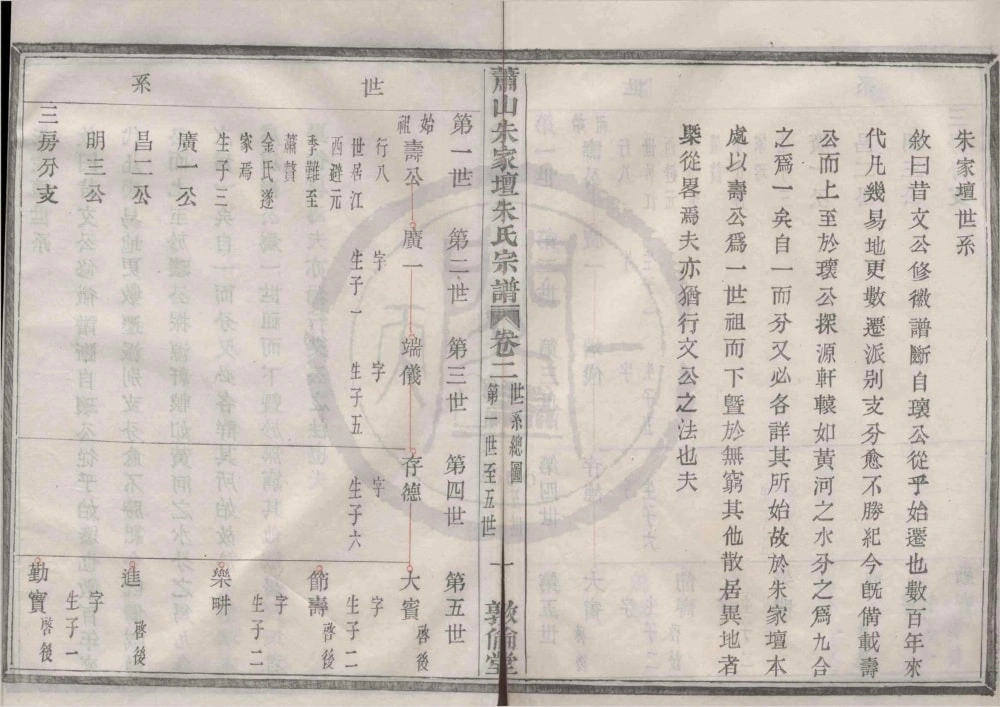 朱家壇世系
敘曰昔文公修徽譜斷自瓌公從乎始遷也數百年來
代凡幾易地更數遷派别支分愈不勝紀今旣備載壽
公而上至於瓌公探源軒轅如黃河之水分之爲九合
之爲一矣自一而分又必各詳其所始故於朱家壇本
處以壽公爲一世祖而下曁於無窮其他散居異地者
槩從畧焉夫亦猶行文公之法也夫
蕭山朱家壇朱氏宗譜
卷二
世系總圖
第一世至五世
一
敦倫堂
世系
第一世
第二世
第三世
第四世
第五世
始祖
壽公
廣一
端儀
存德
大賓
啓後
行八
世居江
西避元
季難至
蕭贅
金氏遂
家焉
生子三
廣一公
昌二公
明三公
三房分支
字
生子一
字
生子五
字
生子六
字
生子二
節壽
啓後
字
生子二
樂畊
進
啓後
字
生子一
勤實
啓後